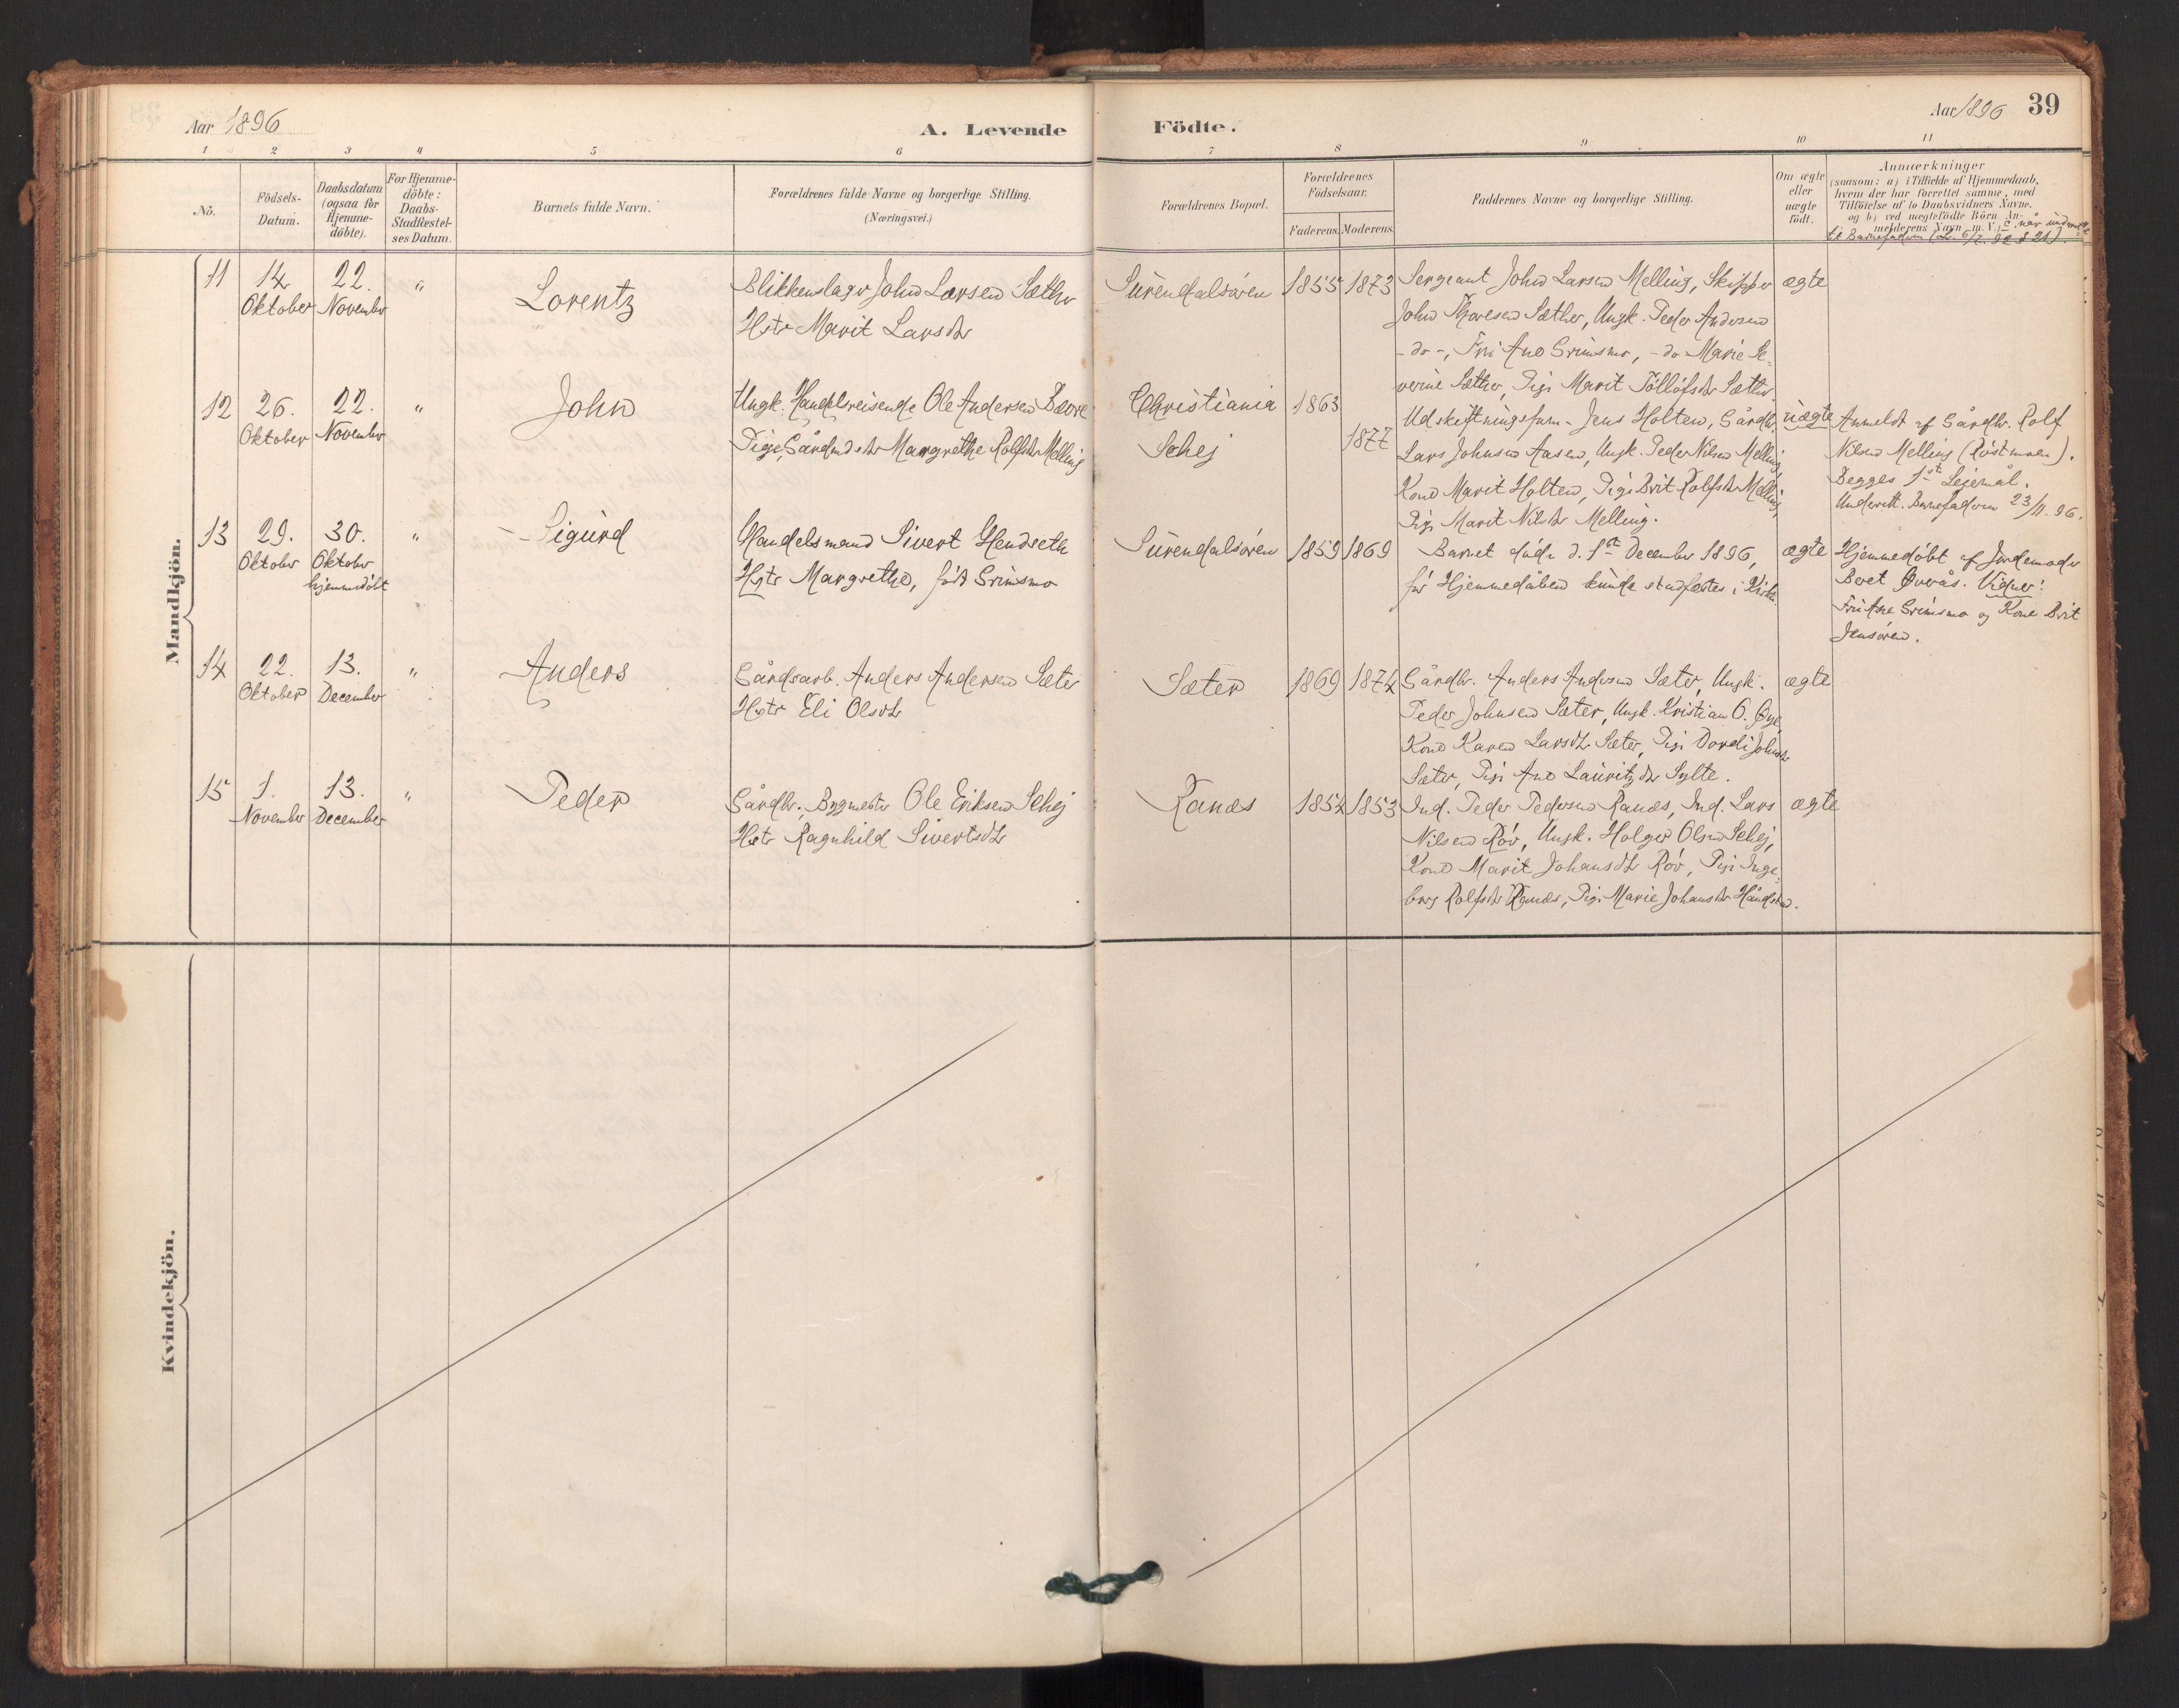 Aar 1896
A. Levende
Födte.
Aar 1896 39
1 2 3 4 5 6 7 8 9 10 11
No.
Födsels-
Datum.
Daabsdatum
(ogsaa for
Hjemme-
döbte).
For Hjemme-
döbte:
Daabs-
Stadfæstel-
ses Datum.
Barnets fulde Navn.
Forældrenes fulde Navne og borgerlige Stilling.
(Næringsvei.)
Forældrenes Bopæl.
Forældrenes
Födselsaar.
Faderens. Moderens.
Faddernes Navne og borgerlige Stilling.
Om ægte
eller
uægte
födt.
Anmærkninger
(saasom: a) i Tilfælde af Hjemmedaab,
hvem der har forrettet samme, med
Tilföielse af to Daabsvidners Navne.
og b) ved uægtefödte Börn An-
melderens Navn m. V.) c. når underrett.
til Barnefaderen (L. 6/7. 92 § 21)
Mandkjön.
11
14
Oktober
22.
November
"
Lorentz
Blikkenslager John Larsen Sæther
Hstr Marit Larsdtr
Surendalsören
1855
1873
Sergeant John Larsen Melling, Skipper
John Thoresen Sæther, Ungk. Peder Andersen
-do-, Frk Ane Grimsmo, -do Marie Se-
verine Sæther, Pige Marit Töllöfsdtr Sæther.
ægte
12
26.
Oktober
22.
November
"
John
Ungk. Handelsreisende Ole Andersen Bævre
Pige, Gårdmdstr Margrethe Rolfsdtr Melling
Christiania
Schej
1863
1877
Udskiftningsform. Jens Holten, Gårdbr.
Lars Johnsen Aasen, Ungk. Peder Nilsen Melling,
Kone Marit Holten, Pige Brit Rolfsdtr Melling,
Pige Marit Nilsdtr Melling.
uægte
Anmeldt af Gårdbr. Rolf
Nilsen Melling (Röstmoen).
Begges 1st Leiermål.
Underrett. Barnefaderen 23/11. 96.
13
29.
Oktober
30.
Oktober
hjemmedöbt
"
Sigurd
Handelsmand Sivert Hendseth
Hstr Margrethe, född Grimsmo
Surendalsören
1859
1869
Barnet döde d. 1st December 1896,
för Hjemmedåben kunde stadfæstes i Kirken.
ægte
Hjemmedöbt af Jordemoder
Beret Överås. Vidner:
Frk Ane Grimsmo og Kone Brit
Jensören.
14
22.
Oktober
13.
December
"
Anders
Gårdsarb. Anders Andersen Sæter
Hstr Eli Olsdtr
Sæter
1869
1874
Gårdbr. Anders Andersen Sæter, Ungk.
Peder Johnsen Sæter, Ungk. Kristian O. Öye,
Kone Karen Larsdtr Sæter, Pige Dordi Johnsdtr
Sæter, Pige Ane Lauritzdtr Sylte.
ægte
15
1.
November
13.
December
"
Peder
Gårdbr., Bygmester Ole Eriksen Schej
Hstr Ragnhild Sivertsdtr
Ranæs
1854
1853
Ind. Peder Pedersen Ranæs, Ind. Lars
Nilsen Röv, Ungk. Holger Olsen Schej,
Kone Marit Johansdtr Röv, Pige Inge-
borg Rolfsdtr Ranæs, Pige Marie Johansdtr
ægte
Kvindekjön.